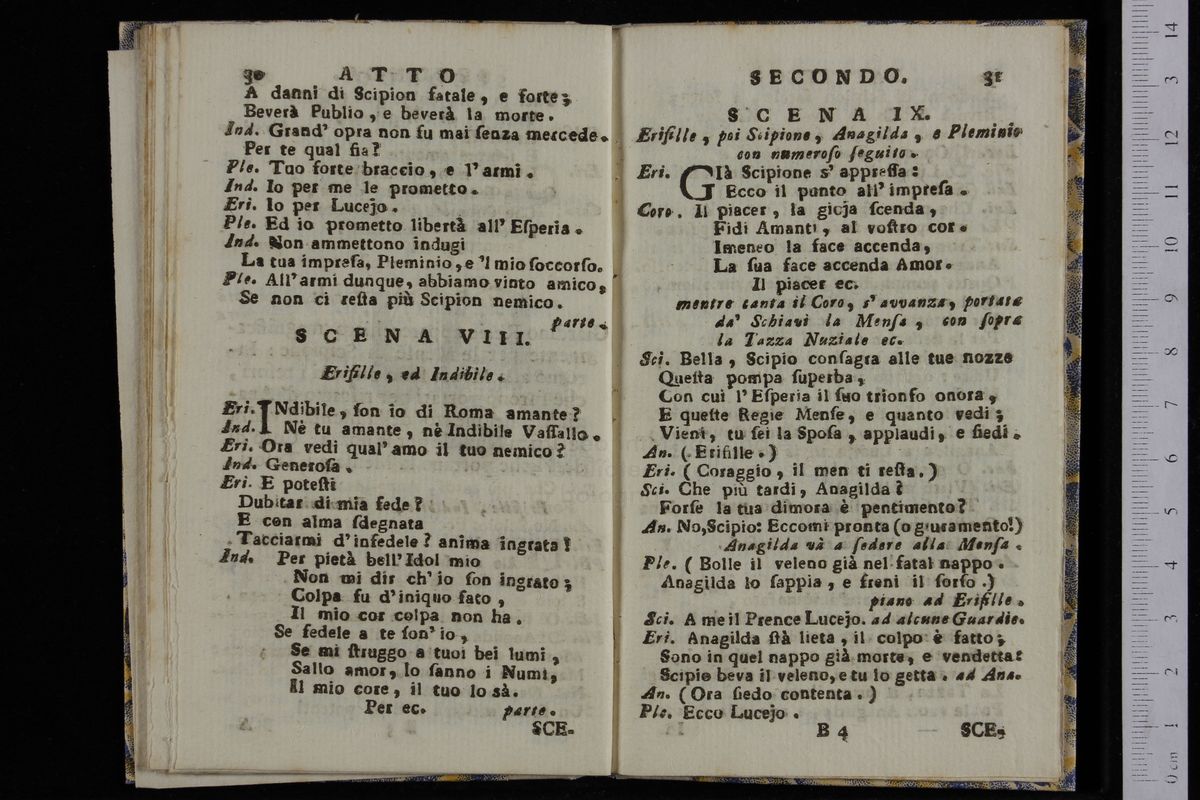 30 ATTO
A danni di Scipion fatale, e forte;
Beverà Publio, e beverà la morte.
Ind. Grand' opra non fu mai ſenza mercede.
Per te qual fia?
Ple. Tuo forte braccio, e l'armi.
Ind. Io per me le prometto.
Eri. Io per Lucejo.
Ple. Ed io prometto libertà all' Eſperia.
Ind. Non ammettono indugi
La tua impreſa, Pleminio, e 'l mio ſoccorſo.
Ple. All' armi dunque, abbiamo vinto amico,
Se non ci reſta più Scipion nemico.
parte.
SCENA VIII.
Erifille, ed Indibile.
Eri. INdibile, ſon io di Roma amante?
Ind. Nè tu amante, nè Indibile Vaſſallo.
Eri. Ora vedi qual' amo il tuo nemico?
Ind. Generoſa.
Eri. E poteſti
Dubitar di mia fede?
E con alma ſdegnata
Tacciarmi d' infedele? anima ingrata!
Ind. Per pietà bell' Idol mio
Non mi dir ch' io ſon ingrato;
Colpa fu d' iniquo fato,
Il mio cor colpa non ha.
Se fedele a te ſon' io,
Se mi ſtruggo a tuoi bei lumi,
Sallo amor, lo ſanno i Numi,
Il mio core, il tuo lo sà.
Per ec. parte.
SCE-
SECONDO. 31
SCENA IX.
Erifille, poi Scipione, Anagilda, e Pleminio
con numeroſo ſeguito.
Eri. GIà Scipione s' appreſſa:
Ecco il punto all' impreſa.
Coro. Il piacer, la gioja ſcenda,
Fidi Amanti, al voſtro cor.
Imeneo la face accenda,
La ſua face accenda Amor.
Il piacer ec.
mentre canta il Coro, s' avvanza, portata
da' Schiavi la Menſa, con ſopra
la Tazza Nuziale ec.
Sci. Bella, Scipio conſagra alle tue nozze
Queſta pompa ſuperba,
Con cui l' Eſperia il ſuo trionfo onora,
E queſte Regie Menſe, e quanto vedi;
Vieni, tu ſei la Spoſa, applaudi, e ſiedi.
An. (Erifille.)
Eri. (Coraggio, il men ti reſta.)
Sci. Che più tardi, Anagilda?
Forſe la tua dimora è pentimento?
An. No, Scipio: Eccomi pronta (o giuramento!)
Anagilda và a ſedere alla Menſa.
Ple. (Bolle il veleno già nel fatal nappo.
Anagilda lo ſappia, e freni il ſorſo.)
piano ad Erifille.
Sci. A me il Prence Lucejo. ad alcune Guardie.
Eri. Anagilda ſtà lieta, il colpo è fatto;
Sono in quel nappo già morte, e vendetta:
Scipio beva il veleno, e tu lo getta. ad Ana.
An. (Ora ſiedo contenta.)
Ple. Ecco Lucejo.
B 4 SCE-
0 cm 1 2 3 4 5 6 7 8 9 10 11 12 13 14